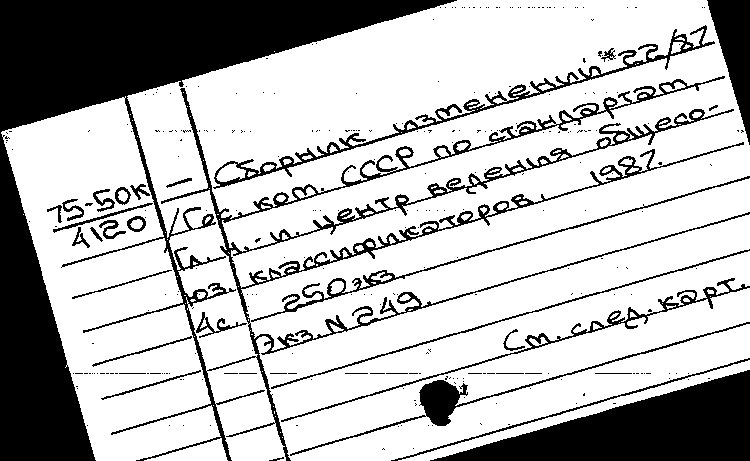 75-50К
4120
— Сборник изменений * 22/87
/Гос. ком. СССР по стандартам,
Гл. н.-и. центр ведения общесо-
юз. классификаторов. 1987.
4с. 250 экз.
Экз. N 249.
См. след. карт.